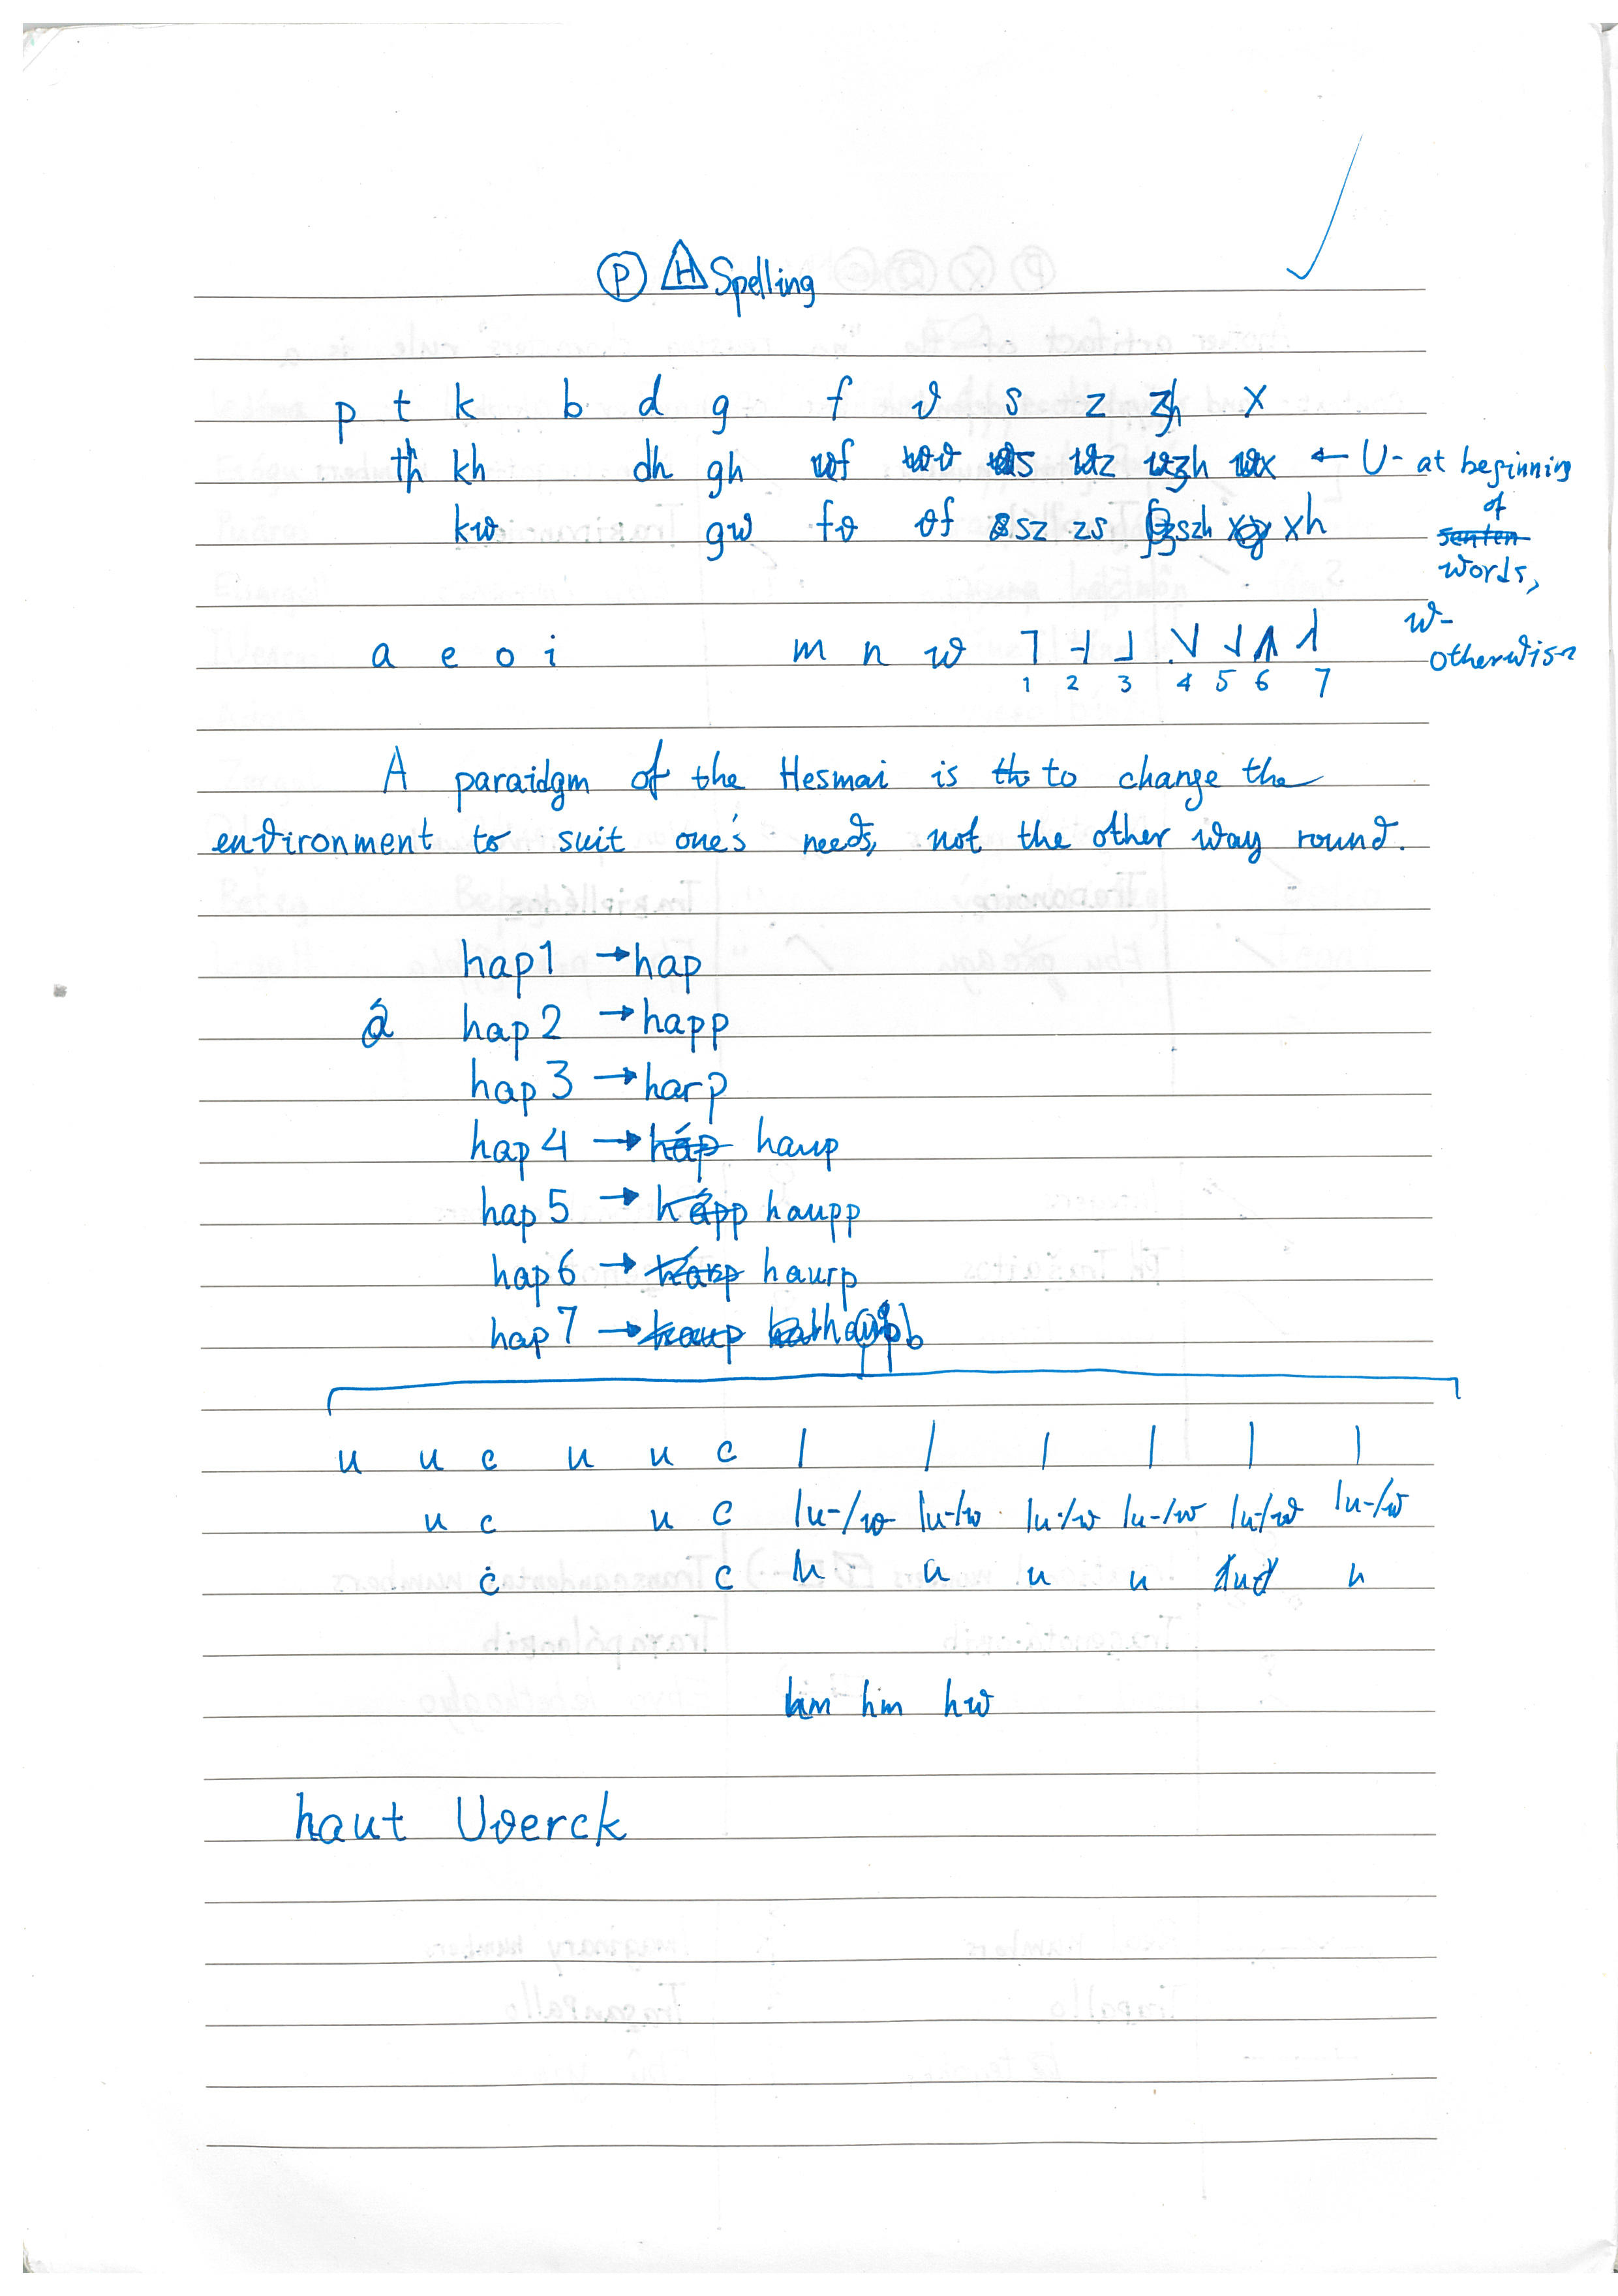 P H Spelling
p t k b d g f v s z zh x
th kh dh gh wf wv ws wz wzh wx ← U- at beginning
of
kw gw fv vf sz zs szh xh
words,
w-
a e o i m n w ˥ ˧ ˩
otherwise
1 2 3 4 5 6 7
A paraidgm of the Hesmai is to change the
environment to suit one's needs, not the other way round.
hap1 → hap
â hap2 → happ
hap3 → harp
hap4 → haup
hap5 → haupp
hap6 → haurp
hap7 →
u u c u u c | | | | | |
u c u c |u-/w |u-/w |u-/w |u-/w |u-/w |u-/w
c c u u u u u u
hm hm hw
haut Uverck